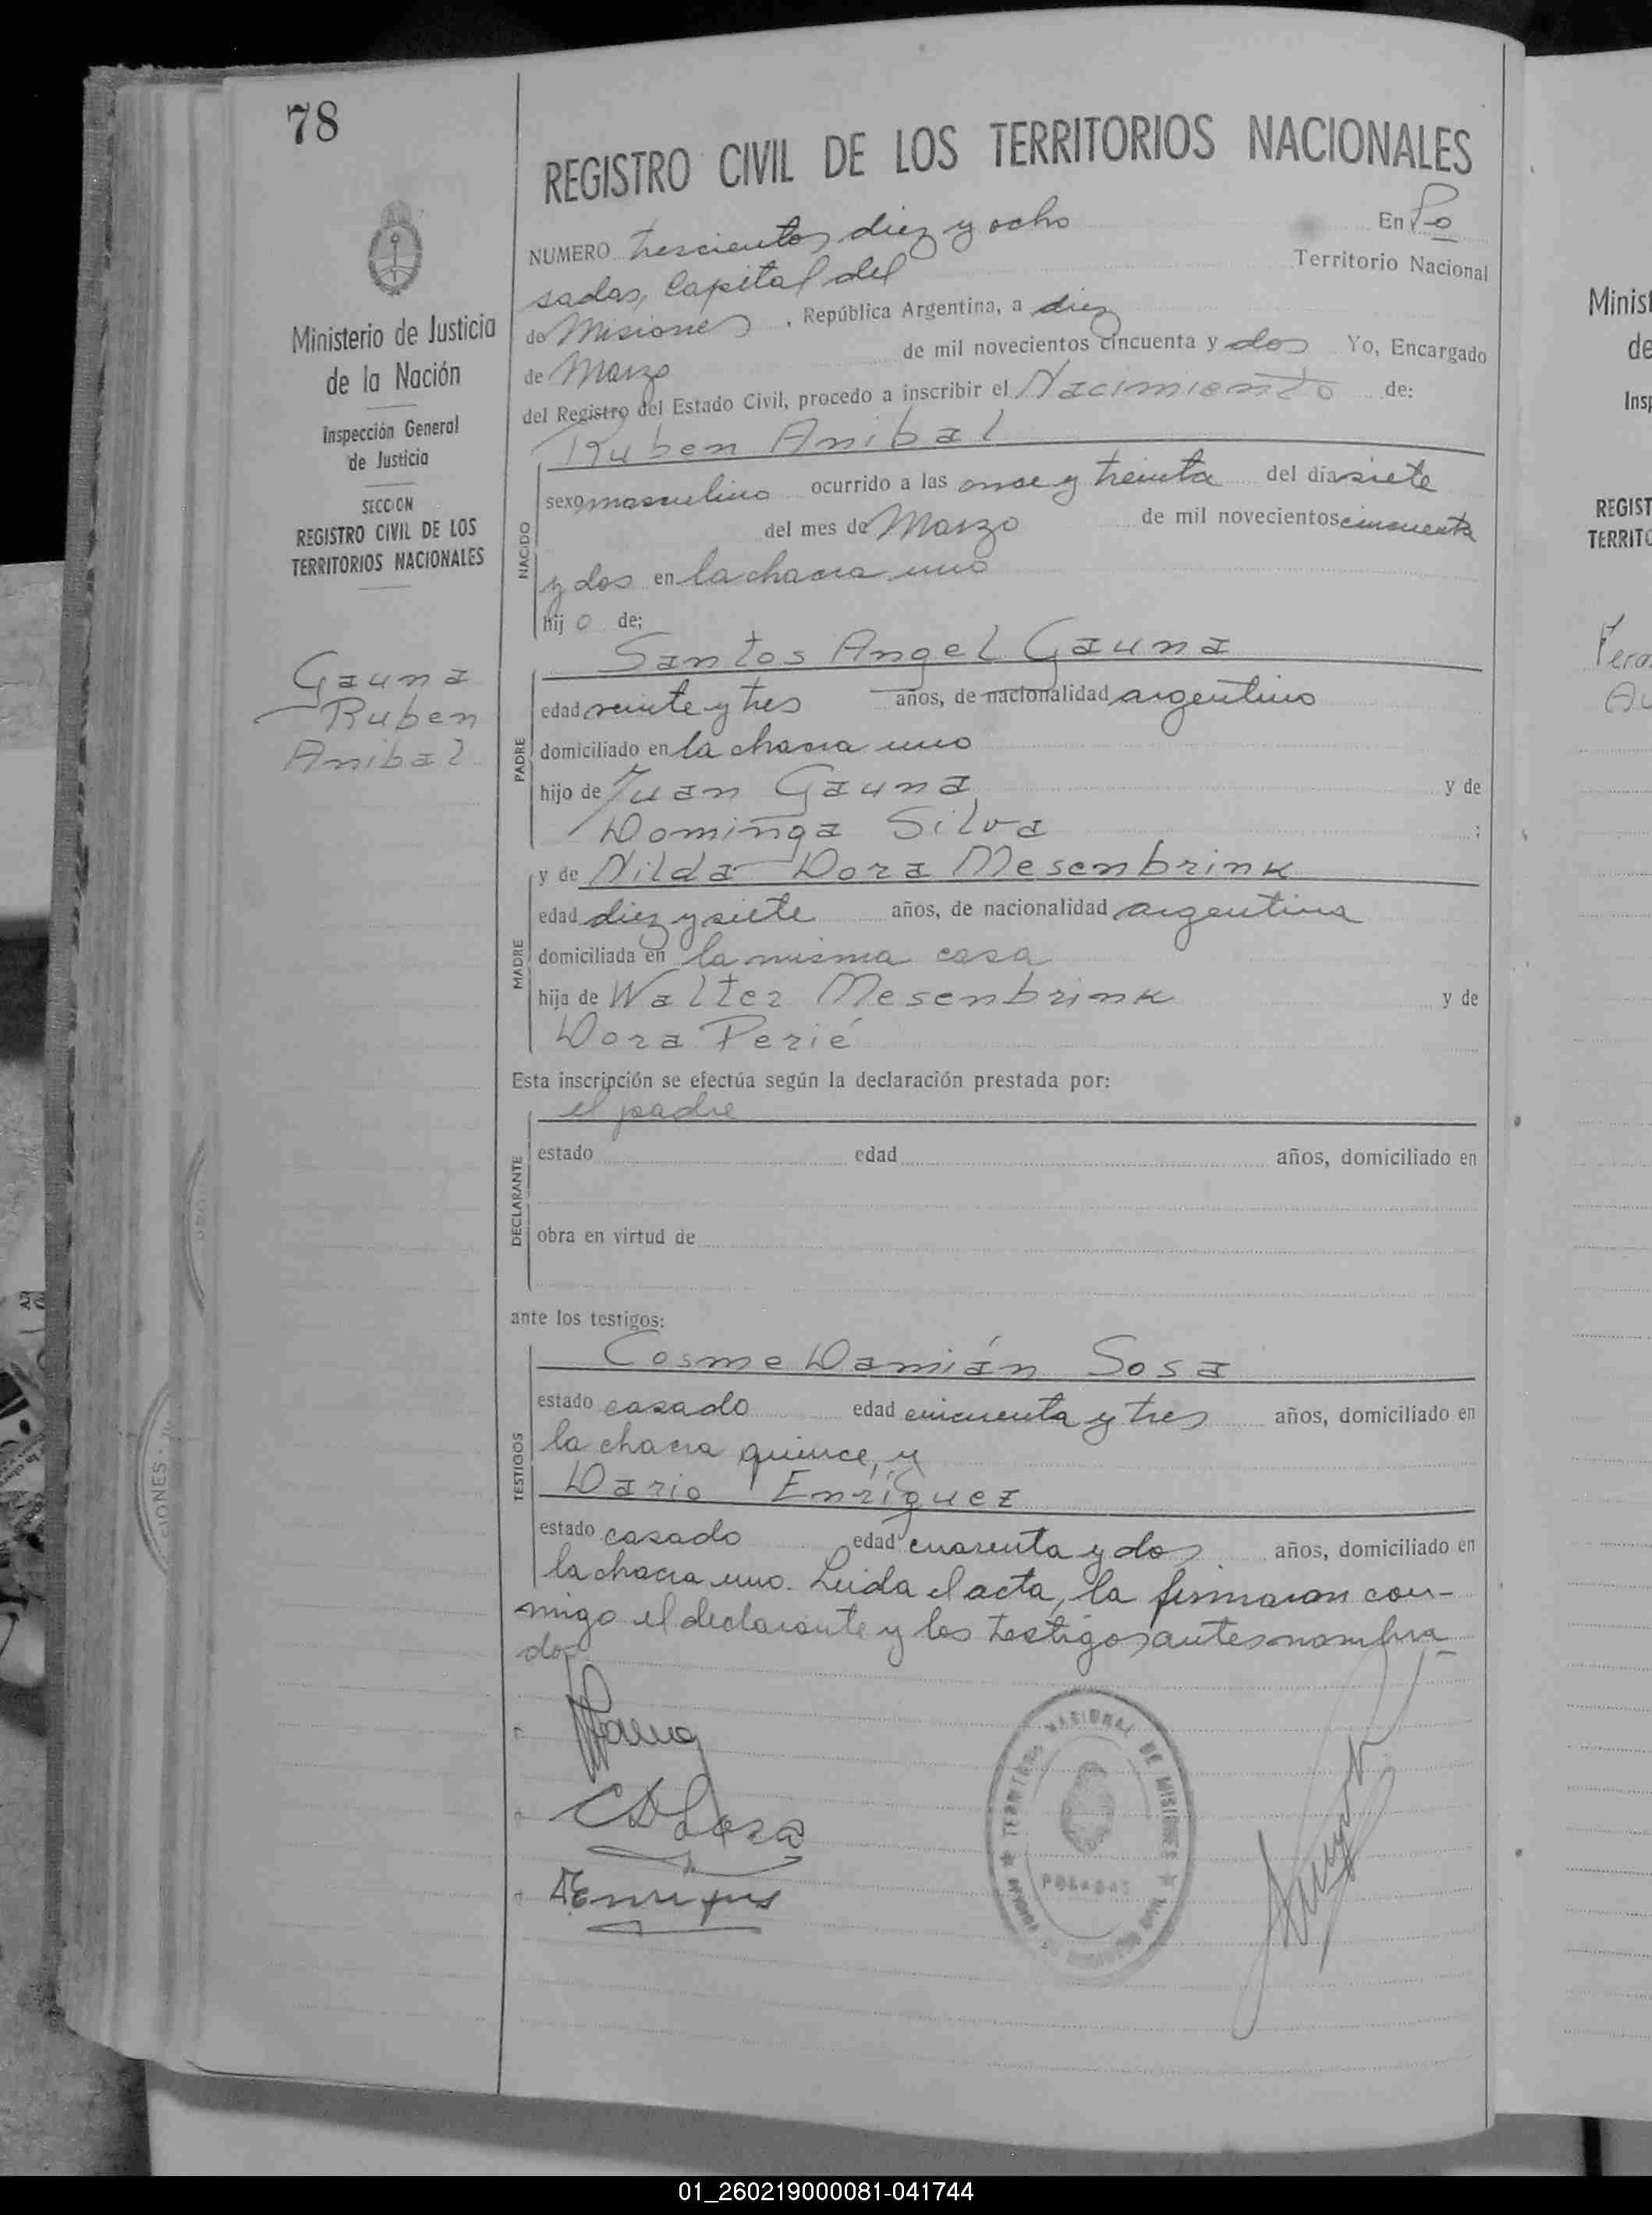 78
REGISTRO CIVIL DE LOS TERRITORIOS NACIONALES
NUMERO trescientos diez y ocho En Po
sadas, Capital del Territorio Nacional
de Misiones, República Argentina, a diez
de Marzo de mil novecientos cincuenta y dos Yo, Encargado
del Registro del Estado Civil, procedo a inscribir el Nacimiento de:
Ruben Anibal
NACIDO
sexo masculino ocurrido a las once y treinta del día siete
del mes de Marzo de mil novecientos cincuenta
y dos en la chacra uno
hijo de;
Santos Angel Gauna
PADRE
edad veinte y tres años, de nacionalidad argentino
domiciliado en la chacra uno
hijo de Juan Gauna y de
Dominga Silva ;
y de Nilda Dora Mesenbrink
MADRE
edad diez y siete años, de nacionalidad argentina
domiciliada en la misma casa
hija de Walter Mesenbrink y de
Dora Perié
Esta inscripción se efectúa según la declaración prestada por:
el padre
DECLARANTE
estado edad años, domiciliado en
obra en virtud de
ante los testigos:
Cosme Damián Sosa
TESTIGOS
estado casado edad cincuenta y tres años, domiciliado en
la chacra quince, y
Dario Enríquez
estado casado edad cuarenta y dos años, domiciliado en
la chacra uno. Leida el acta, la firmaron con-
migo el declarante y los testigos antes nombra-
dos.
Ministerio de Justicia
de la Nación
Inspección General
de Justicia
SECCION
REGISTRO CIVIL DE LOS
TERRITORIOS NACIONALES
Gauna
Ruben
Anibal
Gauna
CDSosa
DEnriquez
TERRITORIO NACIONAL DE MISIONES
POSADAS
CIONES
Minist
de
Insp
REGIST
TERRITO
01_260219000081-041744